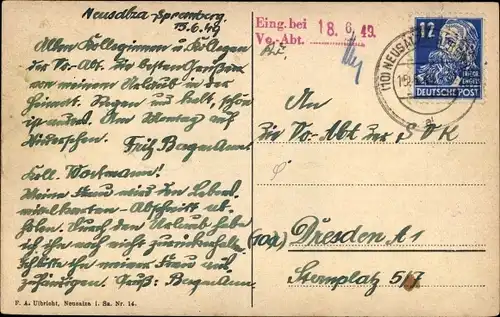 Neusalza-Spremberg.
15.6.49
Allen Kolleginnen u. Kollegen
der Vo-Abt. die besten Grüße von
meinem Urlaub in der
Heimat. Regen und kalt, schön
ist anders. Am Montag auf
Wiedersehen. Fritz Bergmann.
Koll. Workmann!
Meine Frau wird den Lebens-
mittelkarten-Abschnitt ab-
holen. Durch den Urlaub habe
ich ihn noch nicht zurückerhalten.
Bitte ihn meiner Frau aus-
zuhändigen. Gruß: Bergmann.
F. A. Ulbricht, Neusalza i. Sa. Nr. 14.
Eing. bei 18. 6. 49.
Vo.-Abt.
(10) NEUSALZA
12
DEUTSCHE POST
An
die Vo-Abt der SVK
(10a) Dresden A1
Sternplatz 5/7